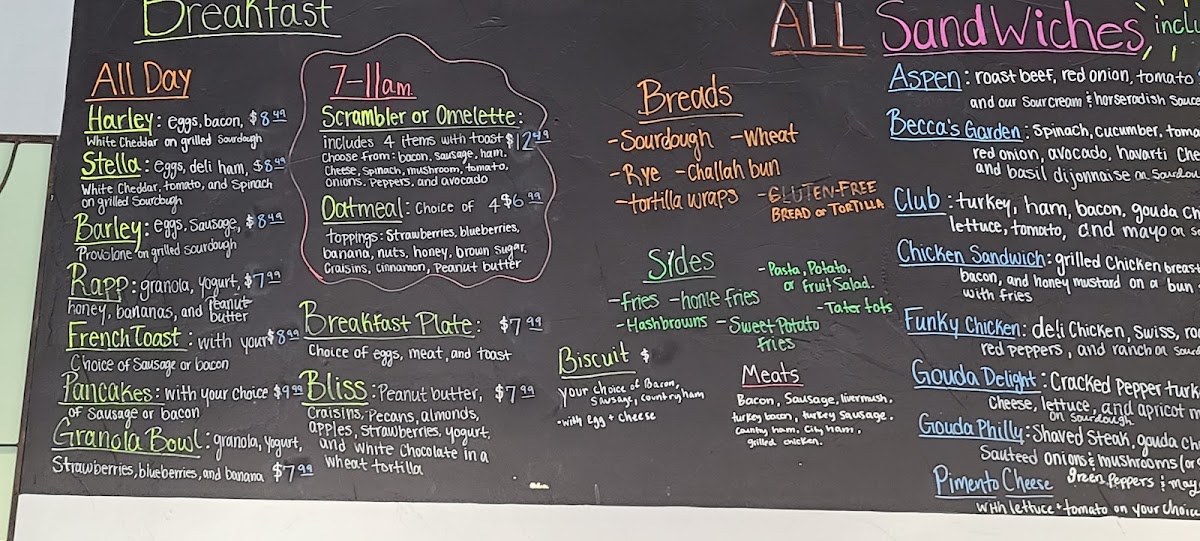 Breakfast
All Day
Harley: eggs, bacon, $8.49
White Cheddar on grilled Sourdough
Stella: eggs, deli ham, $8.49
White Cheddar, tomato, and Spinach
on grilled Sourdough
Barley: eggs, Sausage, $8.49
Provolone on grilled sourdough
Rapp: granola, yogurt, $7.99
honey, bananas, and Peanut butter
French Toast: with your $8.99
Choice of Sausage or bacon
Pancakes: with your choice $9.99
of Sausage or bacon
Granola Bowl: granola, yogurt,
Strawberries, blueberries, and banana $7.99
7-11am
Scrambler or Omelette:
includes 4 items with toast $12.49
Choose from: bacon, Sausage, ham,
Cheese, Spinach, mushroom, tomato,
onions, Peppers, and avocado
Oatmeal: Choice of 4 $6.99
toppings: Strawberries, blueberries,
banana, nuts, honey, brown sugar,
Craisins, cinnamon, Peanut butter
Breakfast Plate: $7.99
Choice of eggs, meat, and toast
Bliss: Peanut butter, $7.99
Craisins, Pecans, almonds,
apples, Strawberries, yogurt,
and white Chocolate in a
wheat tortilla
Breads
-Sourdough -Wheat
-Rye -Challah bun
-tortilla wraps -GLUTEN-FREE
BREAD or TORTILLA
Sides
-fries -home fries
-Hashbrowns -Sweet Potato
fries
-Pasta, Potato,
or Fruit Salad.
-Tater tots
Biscuit $
your choice of Bacon,
Sausage, Country ham
-with Egg + cheese
Meats
Bacon, Sausage, livermush,
turkey bacon, turkey Sausage,
Country ham, City ham,
grilled chicken.
ALL Sandwiches
Aspen: roast beef, red onion, tomato
and our Sour cream & horseradish
Becca's Garden: Spinach, cucumber,
red onion, avocado, havarti
and basil dijonnaise on
Club: turkey, ham, bacon, gouda
lettuce, tomato, and mayo on
Chicken Sandwich: grilled Chicken
bacon, and honey mustard on a bun
with fries
Funky Chicken: deli Chicken, swiss,
red peppers, and ranch on
Gouda Delight: Cracked Pepper
Cheese, lettuce, and apricot
on sourdough
Gouda Philly: Shaved steak, gouda
Sauteed onions & mushrooms
green peppers &
Pimento Cheese
with lettuce + tomato on your